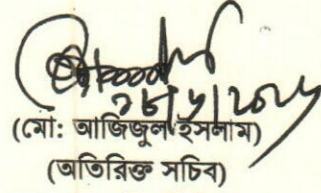 (মো: আজিজুল ইসলাম)
(অতিরিক্ত সচিব)